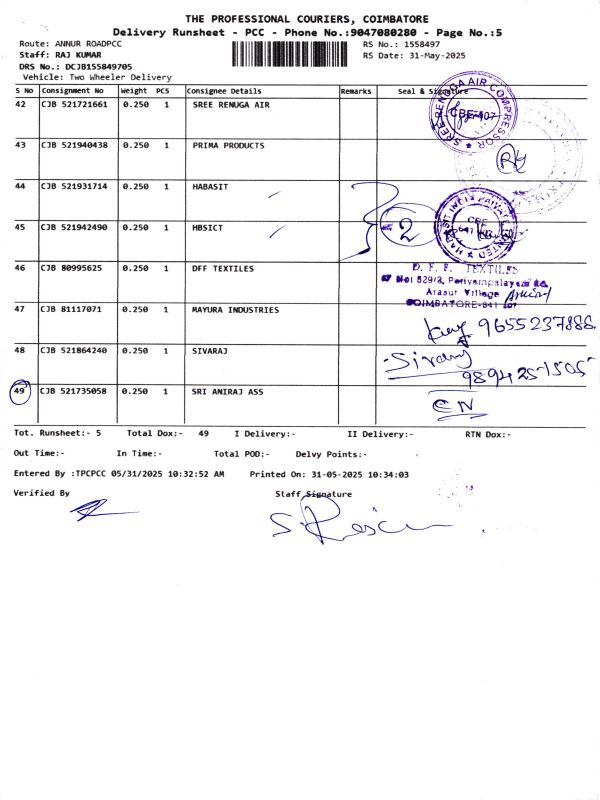 THE PROFESSIONAL COURIERS, COIMBATORE
Delivery Runsheet - PCC - Phone No.:9047080280 - Page No.:5
Route: ANNUR ROADPCC RS No.: 1558497
Staff: RAJ KUMAR RS Date: 31-May-2025
DRS No.: DCJB155849705
Vehicle: Two Wheeler Delivery
S No Consignment No Weight PCS Consignee Details Remarks Seal & Signature
42 CJB 521721661 0.250 1 SREE RENUGA AIR
SREE RENUGA AIR COMPRESSOR
43 CJB 521940438 0.250 1 PRIMA PRODUCTS
44 CJB 521931714 0.250 1 HABASIT
2
45 CJB 521942490 0.250 1 HBSICT
46 CJB 80995625 0.250 1 DFF TEXTILES
D. F. F. TEXTILES
Arasur Village
47 CJB 81117071 0.250 1 MAYURA INDUSTRIES
9655237888
48 CJB 521864240 0.250 1 SIVARAJ
9894251505
49 CJB 521735058 0.250 1 SRI ANIRAJ ASS
CN
Tot. Runsheet:- 5 Total Dox:- 49 I Delivery:- II Delivery:- RTN Dox:-
Out Time:- In Time:- Total POD:- Delvy Points:-
Entered By :TPCPCC 05/31/2025 10:32:52 AM Printed On: 31-05-2025 10:34:03
Verified By Staff Signature